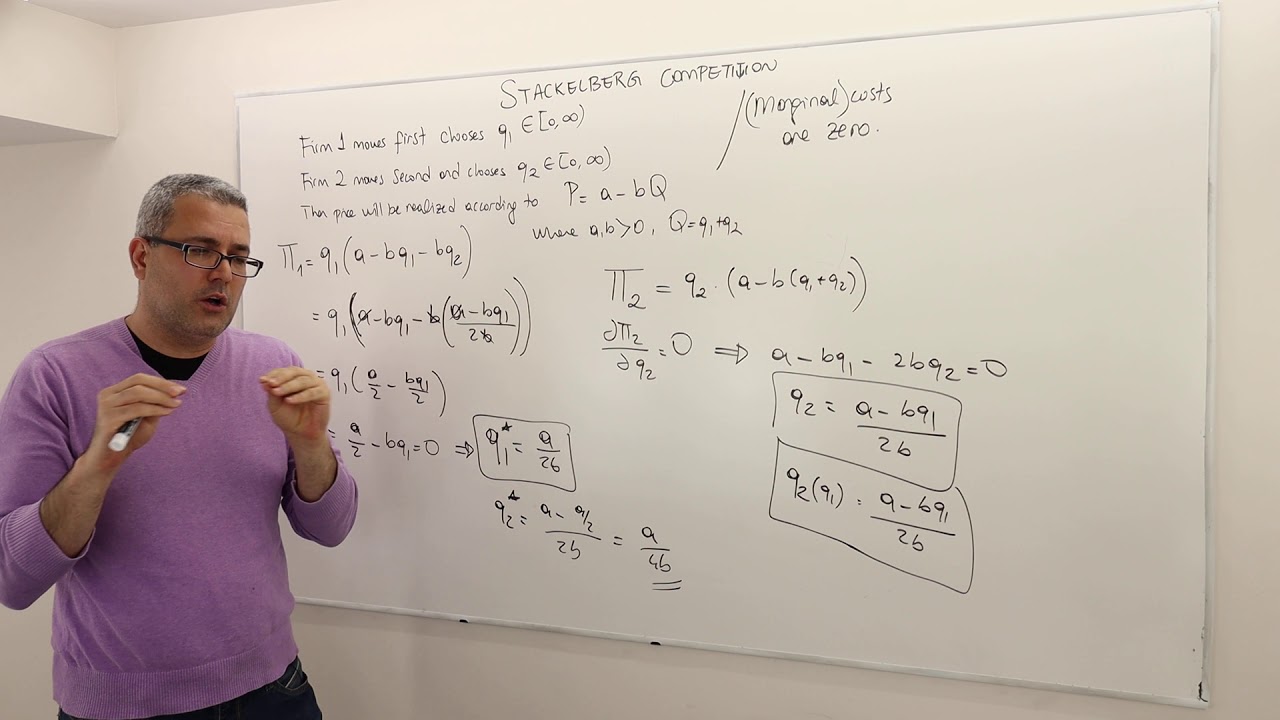 STACKELBERG COMPETITION
Firm 1 moves first chooses q₁ ∈ [0, ∞)
Firm 2 moves second and chooses q₂ ∈ [0, ∞)
Then price will be realized according to P = a - bQ
where a, b > 0, Q = q₁ + q₂
/(Marginal) costs
are zero.
Π₁ = q₁(a - bq₁ - bq₂)
= q₁(a - bq₁ - b((a - bq₁)/2b))
= q₁(a/2 - bq₁/2)
= a/2 - bq₁ = 0 ⇒ q₁* = a/2b
q₂* = (a - a/2)/2b = a/4b
Π₂ = q₂ · (a - b(q₁ + q₂))
∂Π₂/∂q₂ = 0 ⇒ a - bq₁ - 2bq₂ = 0
q₂ = (a - bq₁)/2b
q₂(q₁) = (a - bq₁)/2b